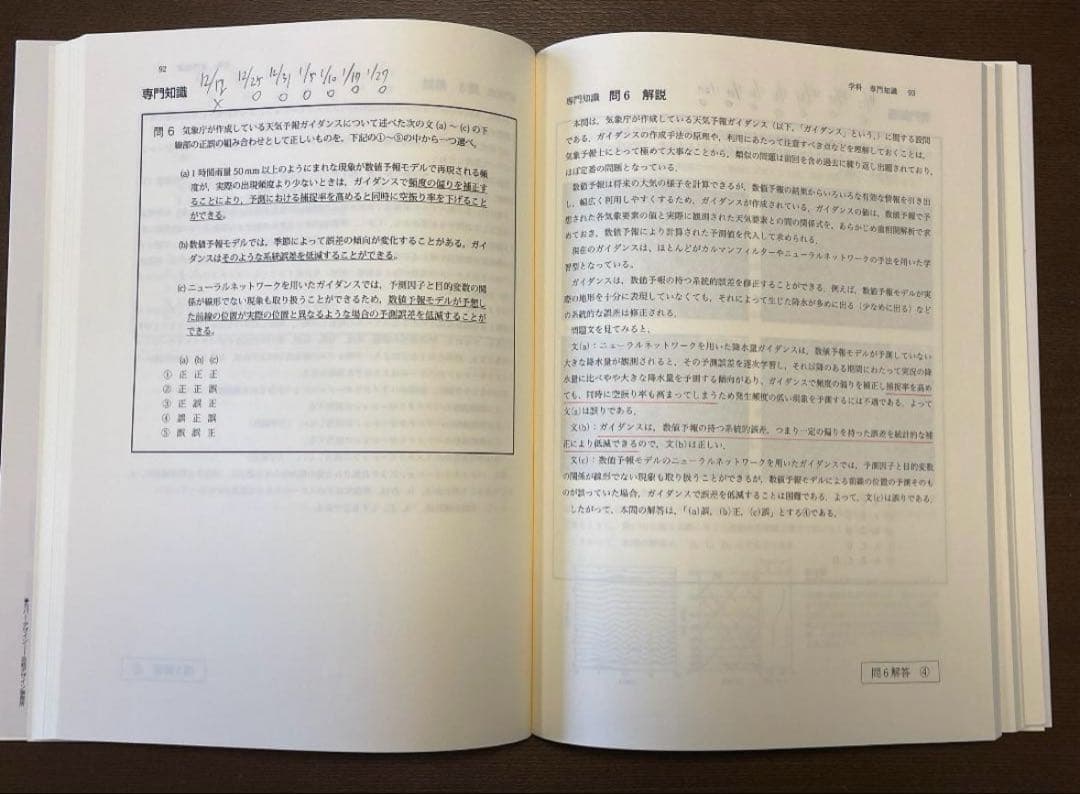 92
12/12 12/25 12/31 1/5 1/10 1/19 1/27
× ○ ○ ○ ○ ○ ○
専門知識
問6 気象庁が作成している天気予報ガイダンスについて述べた次の文(a)～(c)の下
線部の正誤の組み合わせとして正しいものを，下記の①～⑤の中から一つ選べ。
(a) 1時間雨量50mm以上のようにまれな現象が数値予報モデルで再現される頻
度が，実際の出現頻度より少ないときは，ガイダンスで頻度の偏りを補正す
ることにより，予測における捕捉率を高めると同時に空振り率を下げること
ができる。
(b) 数値予報モデルでは，季節によって誤差の傾向が変化することがある。ガイ
ダンスはそのような系統誤差を低減することができる。
(c) ニューラルネットワークを用いたガイダンスでは，予測因子と目的変数の関
係が線形でない現象も取り扱うことができるため，数値予報モデルが予想し
た前線の位置が実際の位置と異なるような場合の予測誤差を低減することが
できる。
(a) (b) (c)
① 正 正 正
② 正 正 誤
③ 正 誤 正
④ 誤 正 誤
⑤ 誤 誤 正
学科 専門知識 93
専門知識 問6 解説
本問は，気象庁が作成している天気予報ガイダンス（以下，「ガイダンス」という。）に関する設問
である。ガイダンスの作成手法の原理や，利用にあたって注意すべき点などを理解しておくことは，
気象予報士にとって極めて大事なことから，類似の問題は前回を含め過去に繰り返し出題されており，
ほぼ定番の問題となっている。
数値予報は将来の大気の様子を計算できるが，数値予報の結果からいろいろな有効な情報を引き出
し，幅広く利用しやすくするため，ガイダンスが作成されている。ガイダンスの値は，数値予報で予
想された各気象要素の値と実際に観測された天気要素との間の関係式を，あらかじめ重相関解析で求
めておき，数値予報により計算された予測値を代入して求められる。
現在のガイダンスは，ほとんどがカルマンフィルターやニューラルネットワークの手法を用いた学
習型となっている。
ガイダンスは，数値予報の持つ系統的誤差を修正することができる。例えば，数値予報モデルが実
際の地形を十分に表現していなくても，それによって生じた降水が多めに出る（少なめに出る）など
の系統的な誤差は修正される。
問題文を見てみると，
文(a)：ニューラルネットワークを用いた降水量ガイダンスは，数値予報モデルが予測していない
大きな降水量が観測されると，その予測誤差を逐次学習し，それ以降のある期間にわたって実況の降
水量に比べやや大きな降水量を予測する傾向があり，ガイダンスで頻度の偏りを補正し捕捉率を高め
ても，同時に空振り率も高まってしまうため発生頻度の低い現象を予測するには不適である。よって
文(a)は誤りである。
文(b)：ガイダンスは，数値予報の持つ系統的誤差，つまり一定の偏りを持った誤差を統計的な補
正により低減できるので，文(b)は正しい。
文(c)：数値予報モデルのニューラルネットワークを用いたガイダンスでは，予測因子と目的変数
の関係が線形でない現象も取り扱うことができるが，数値予報モデルによる前線の位置の予測そのも
のが誤っていた場合，ガイダンスで誤差を低減することは困難である。よって，文(c)は誤りである。
したがって，本問の解答は，「(a)誤，(b)正，(c)誤」とする④である。
問6解答 ④